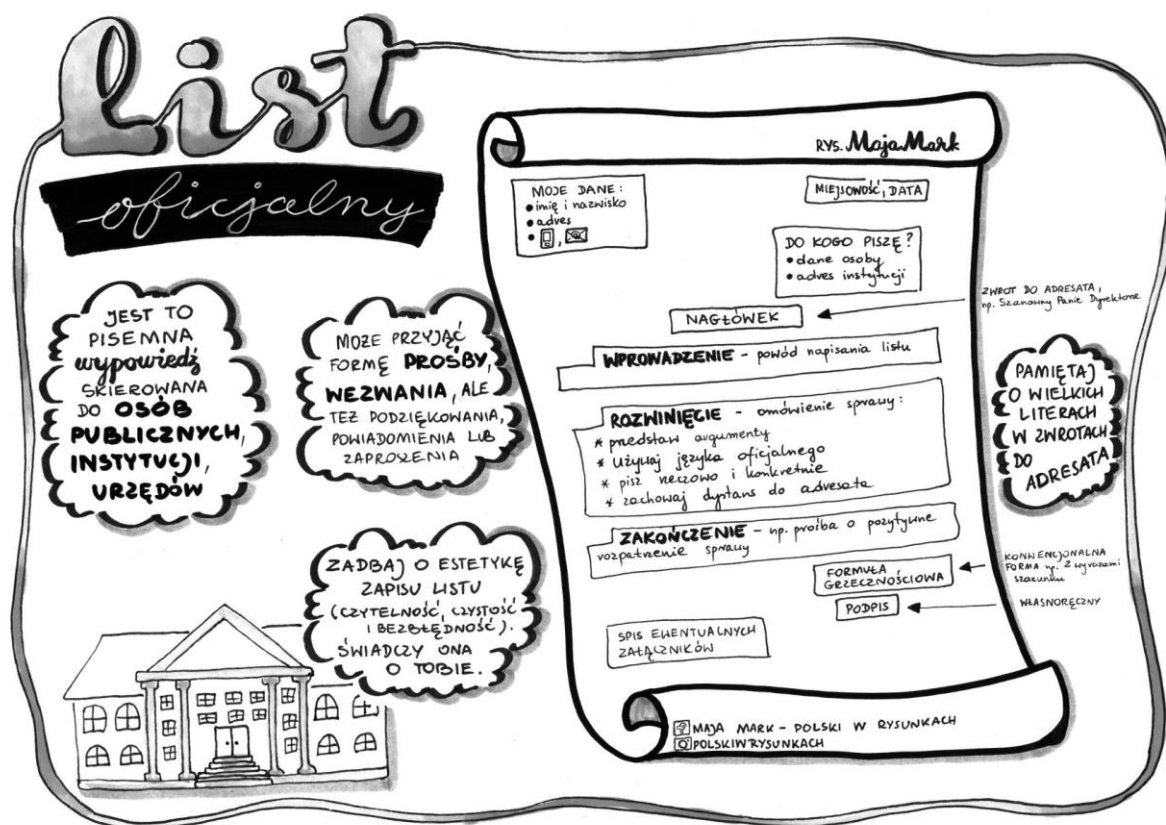 List
oficjalny
JEST TO
PISEMNA
wypowiedź
SKIEROWANA
DO OSÓB
PUBLICZNYCH,
INSTYTUCJI,
URZĘDÓW
MOŻE PRZYJĄĆ
FORMĘ PROŚBY,
WEZWANIA, ALE
TEŻ PODZIĘKOWANIA,
POWIADOMIENIA LUB
ZAPROSZENIA
ZADBAJ O ESTETYKĘ
ZAPISU LISTU
(CZYTELNOŚĆ, CZYSTOŚĆ
I BEZBŁĘDNOŚĆ).
ŚWIADCZY ONA
O TOBIE.
RYS. Maja Mark
MOJE DANE:
• imię i nazwisko
• adres
MIEJSCOWOŚĆ, DATA
DO KOGO PISZĘ?
• dane osoby
• adres instytucji
NAGŁÓWEK
ZWROT DO ADRESATA,
np. Szanowny Panie Dyrektorze
WPROWADZENIE – powód napisania listu
ROZWINIĘCIE – omówienie sprawy:
* przedstaw argumenty
* używaj języka oficjalnego
* pisz rzeczowo i konkretnie
* zachowaj dystans do adresata
ZAKOŃCZENIE – np. prośba o pozytywne
rozpatrzenie sprawy
FORMUŁA
GRZECZNOŚCIOWA
KONWENCJONALNA
FORMA np. Z wyrazami
szacunku
PODPIS
WŁASNORĘCZNY
SPIS EWENTUALNYCH
ZAŁĄCZNIKÓW
PAMIĘTAJ
O WIELKICH
LITERACH
W ZWROTACH
DO
ADRESATA
MAJA MARK – POLSKI W RYSUNKACH
POLSKIWRYSUNKACH